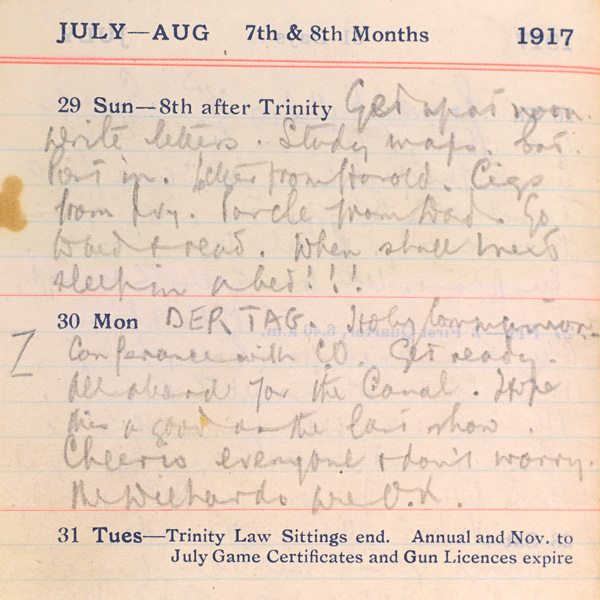 JULY—AUG 7th & 8th Months 1917
29 Sun—8th after Trinity Get up at noon.
Write letters. Study maps. Eat.
Post in. Letter from Harold. Cigs
from Ivy. Parcle from Dad. Go
to bed & read. When shall I next
sleep in a bed!!!
30 Mon DER TAG. Holy Communion.
Z Conference with CO. Get ready.
All aboard for the Canal. Hope
this a good as the last show.
Cheerio everyone & don't worry.
The are O.K.
31 Tues—Trinity Law Sittings end. Annual and Nov. to
July Game Certificates and Gun Licences expire